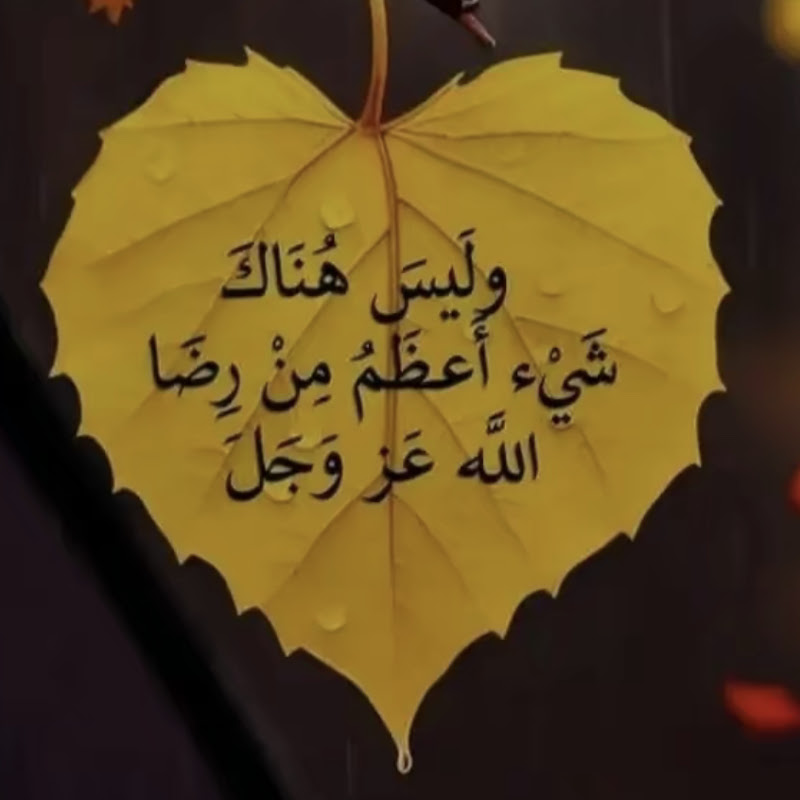 ولَيسَ هُنَاكَ
شَيْء أَعظَمُ مِنْ رِضَا
اللَّه عَز وَجَلَ